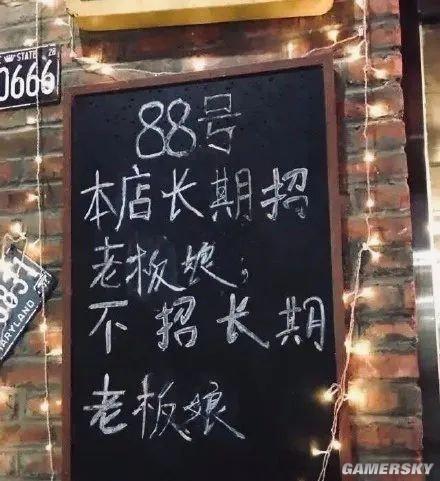 STATE 28
0666
88号
本店长期招
老板娘；
不招长期
老板娘
MARYLAND
GAMERSKY